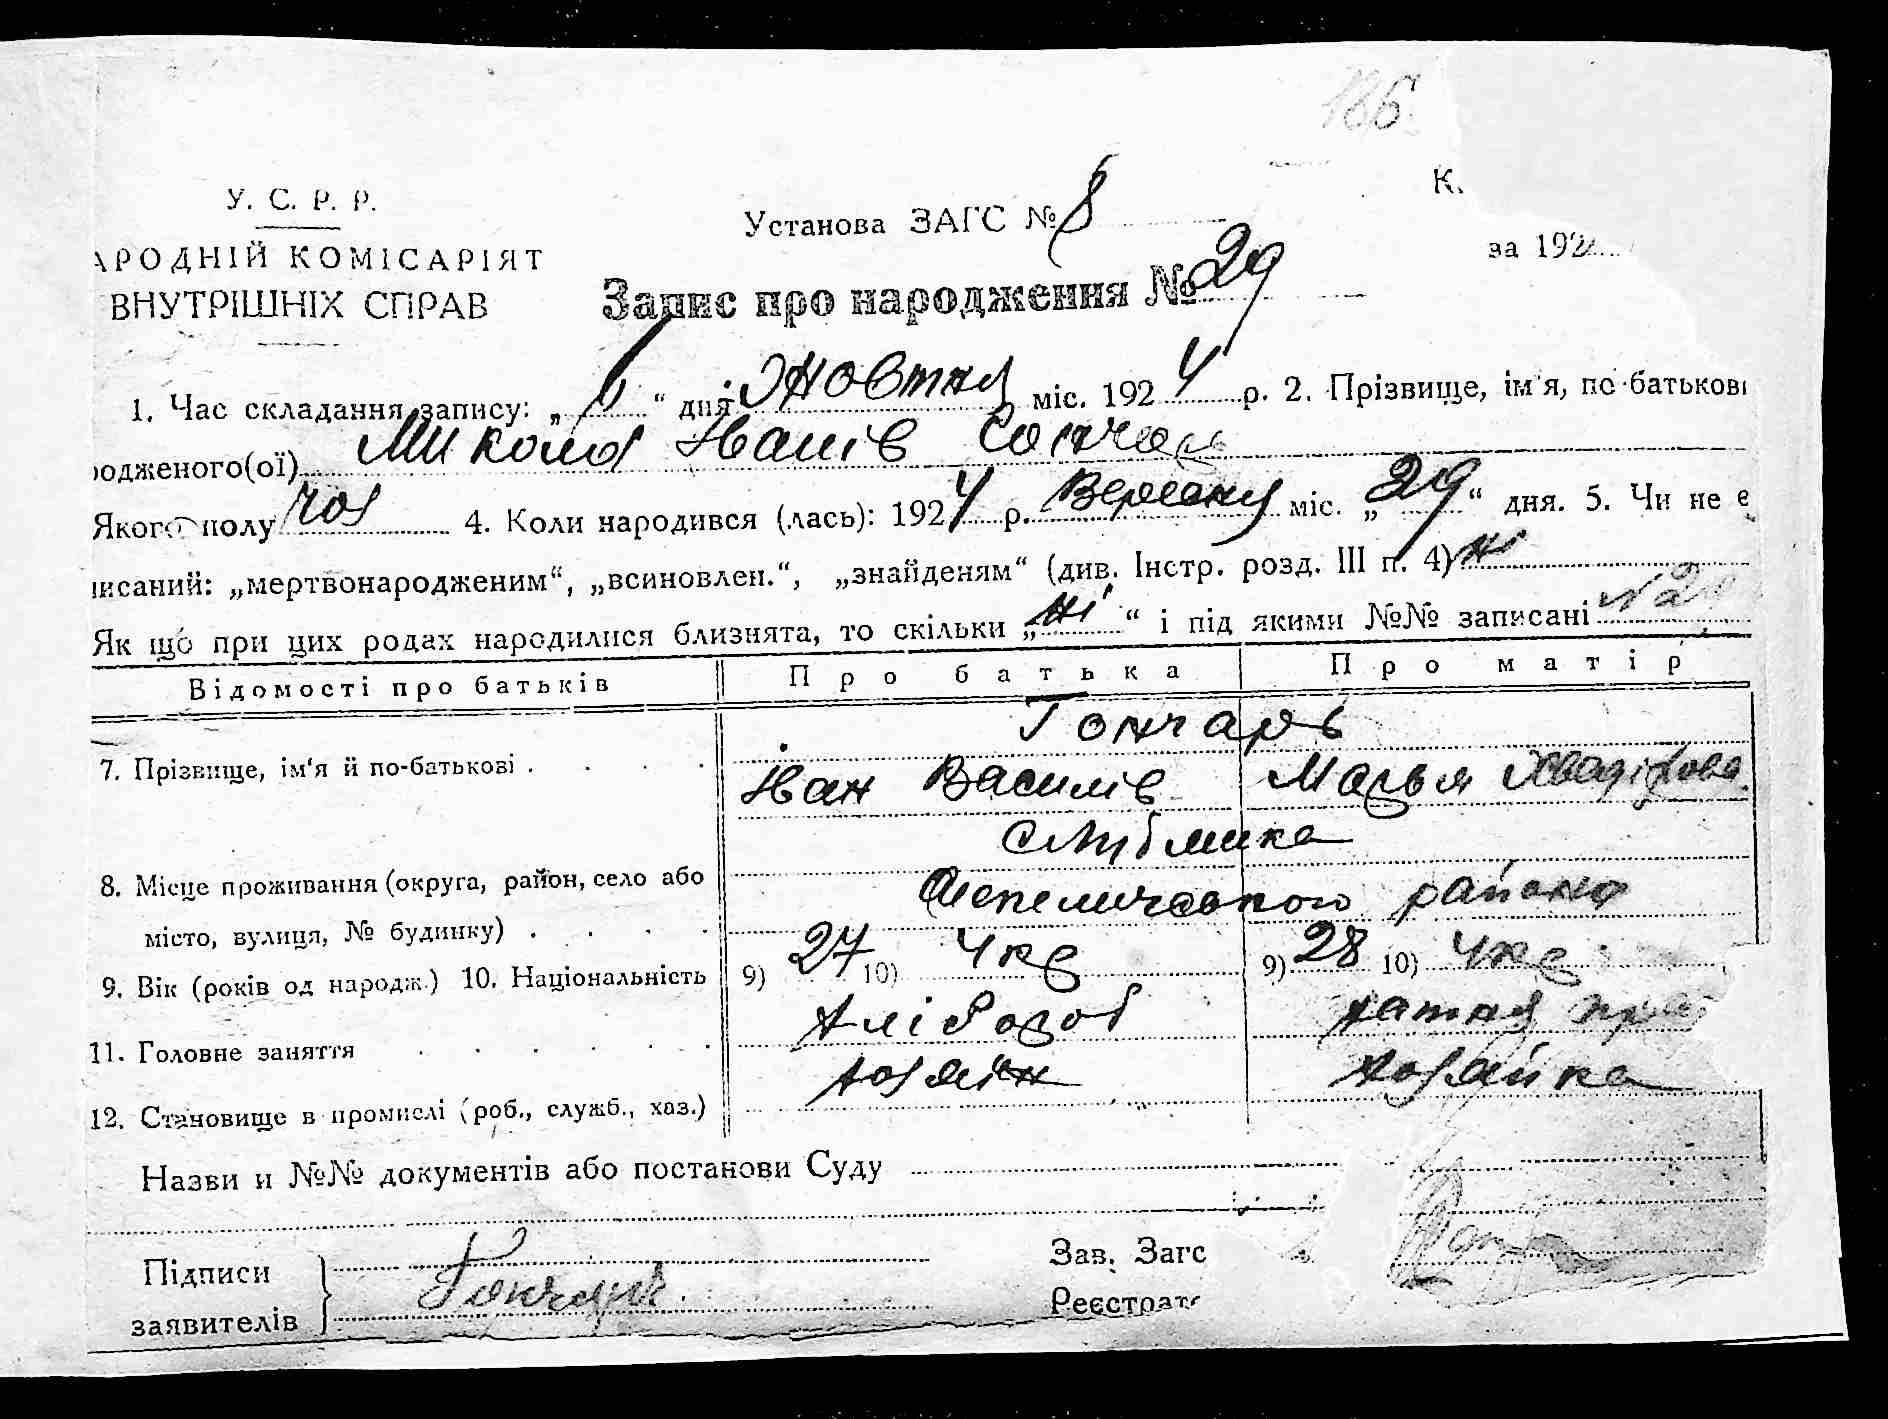 186
У. С. Р. Р.
АРОДНІЙ КОМІСАРІЯТ
ВНУТРІШНІХ СПРАВ
Установа ЗАГС № 8
К.
за 192
Запис про народження № 29
1. Час складання запису: „ 6 “ дня Жовтня міс. 1924 р. 2. Прізвище, ім'я, по батькові
родженого(ої) Микола Іванів Гончар
Якого полу чол 4. Коли народився (лась): 1924 р. Вересня міс. „ 29 “ дня. 5. Чи не є
писаний: „мертвонародженим“, „всиновлен.“, „знайденям“ (див. Інстр. розд. III п. 4) ні
Як що при цих родах народилися близнята, то скільки „ ні “ і під якими №№ записані
Відомості про батьків Про батька Про матір
Гончарь
7. Прізвище, ім'я й по-батькові .
Іван Василів Марья
8. Місце проживання (округа, район, село або
місто, вулиця, № будинку) .
района
9. Вік (років од народж.) 10. Національність 9) 27 10) Укр 9) 28 10) Укр
11. Головне заняття Хлібороб хатня
12. Становище в промислі (роб., служб., хаз.) хозяін хозяйка
Назви и №№ документів або постанови Суду
Підписи
заявителів
Гончарь
Зав. Загс
Реєстрато